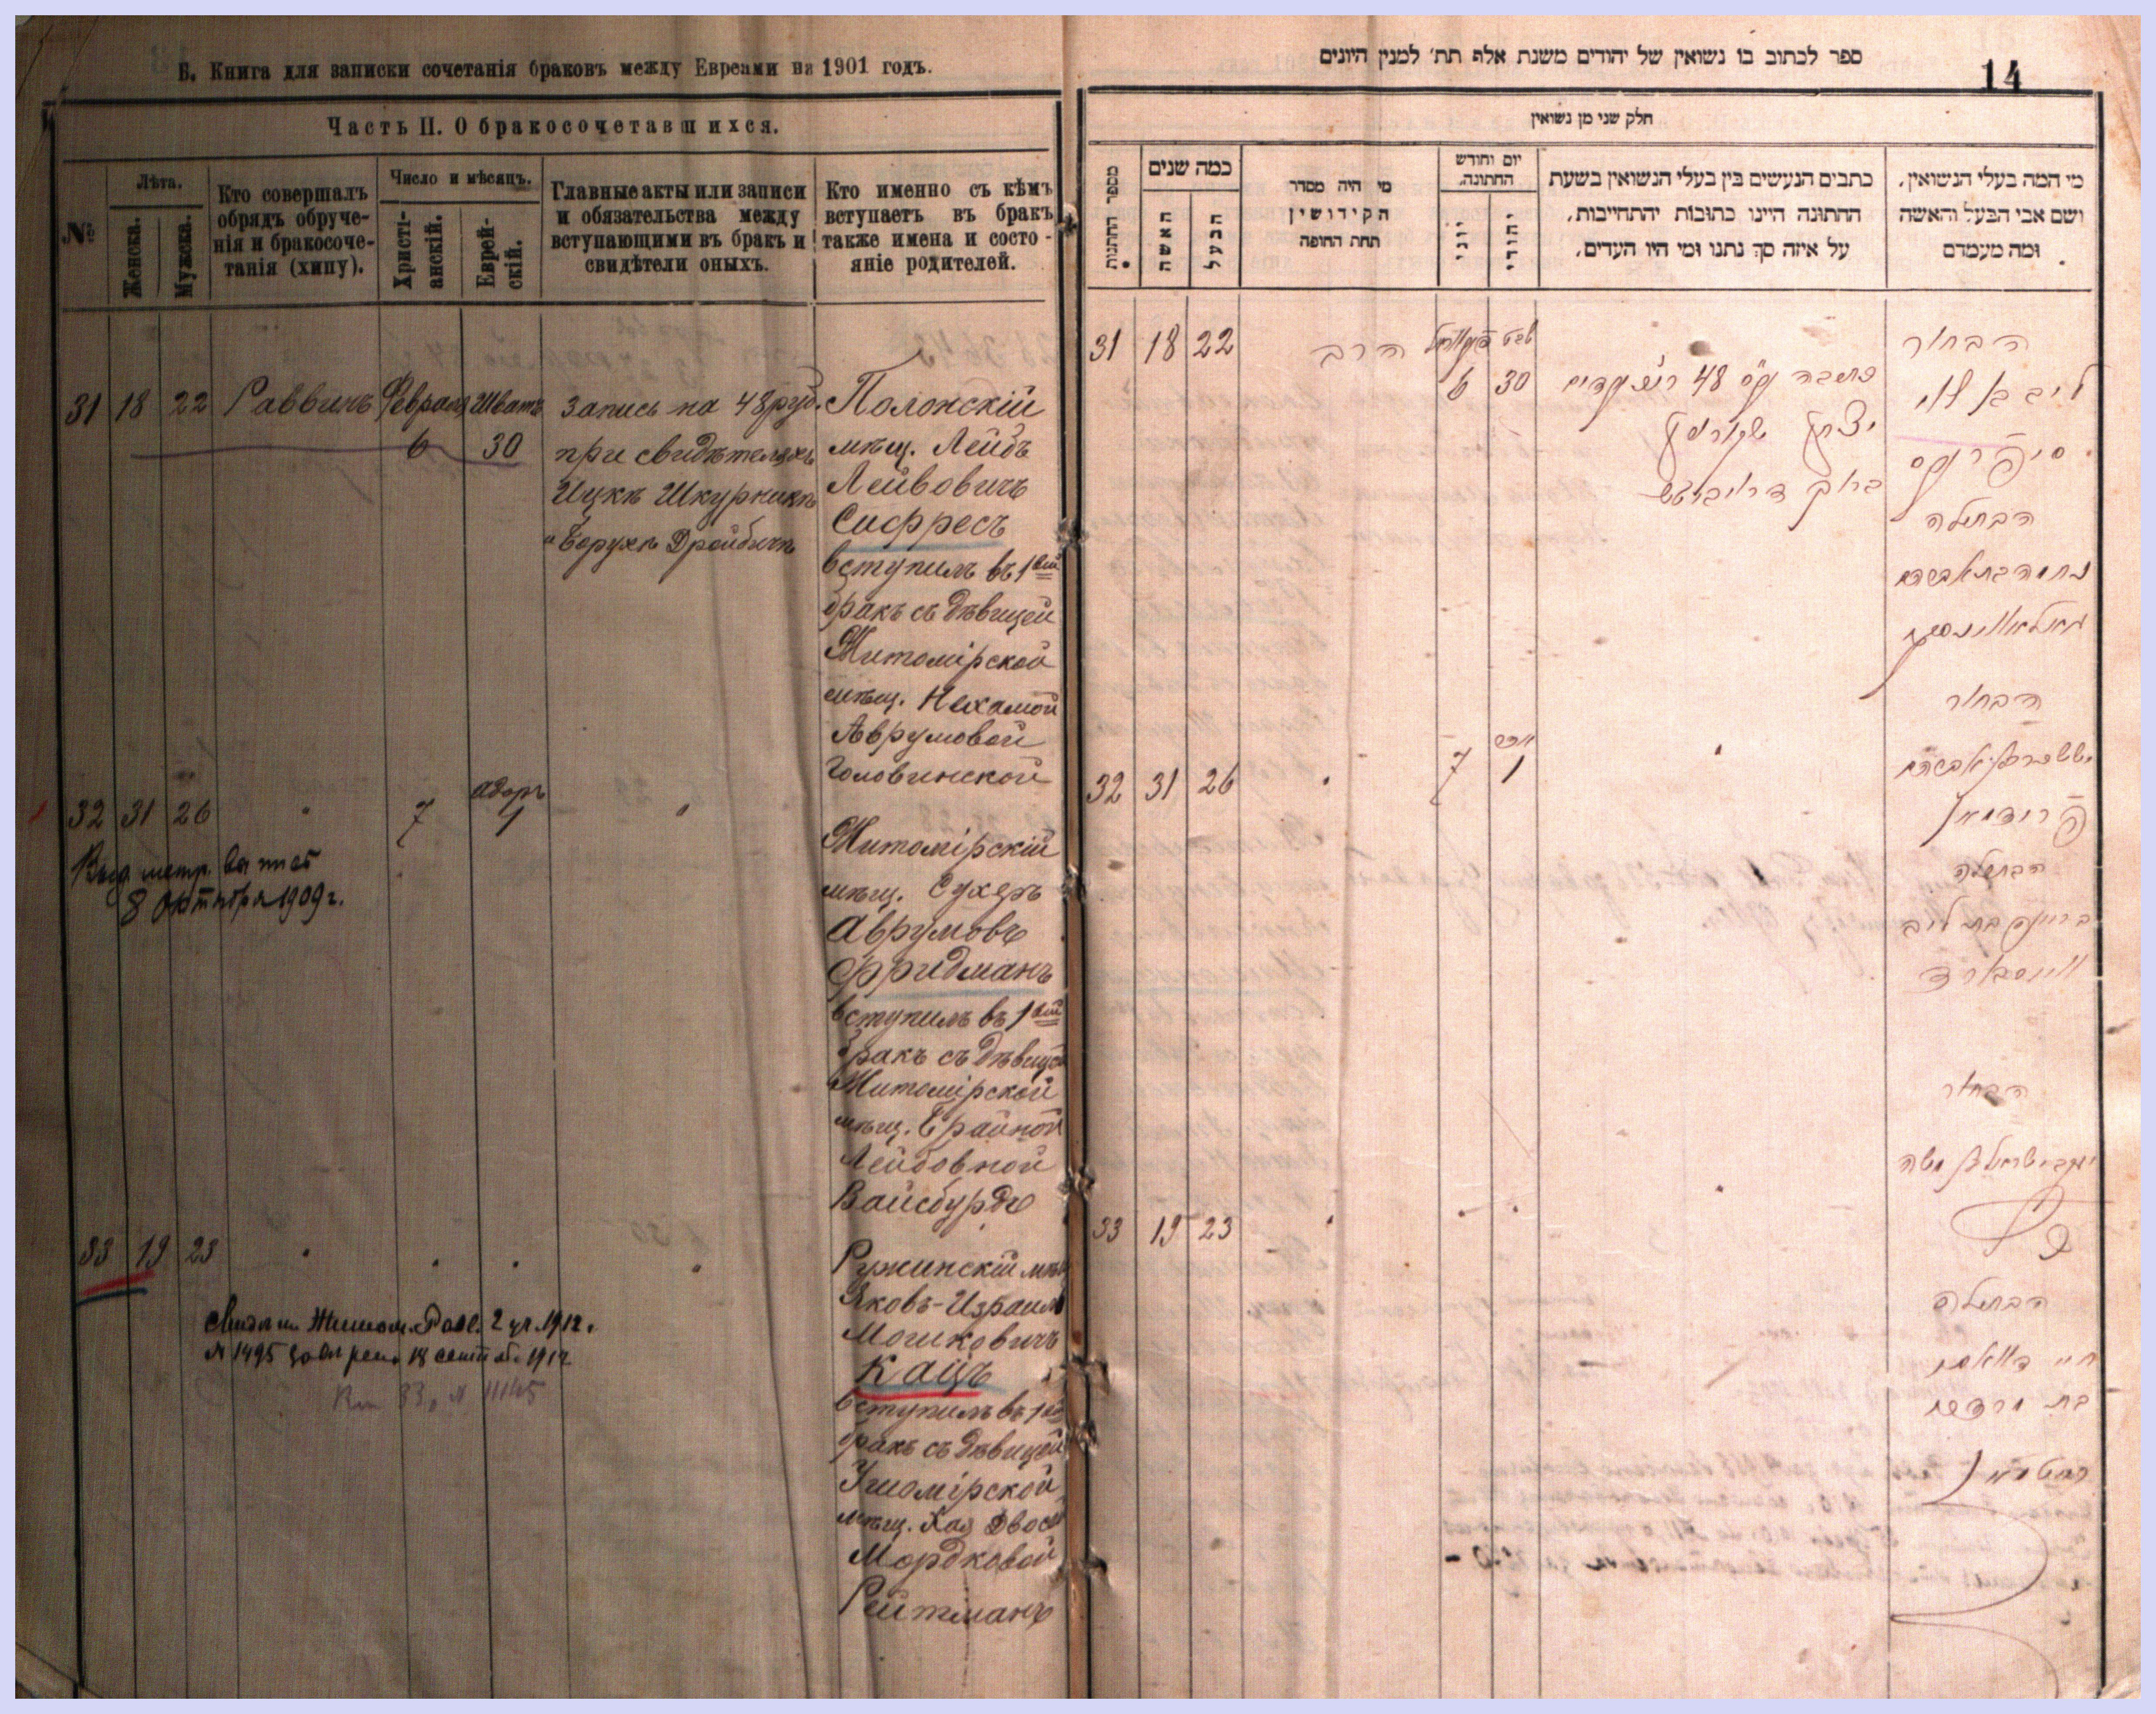 Б. Книга для записки сочетанія браковъ между Евреями на 1901 годъ.
Часть II. О бракосочетавшихся.
№
Лѣта.
Женска.
Мужска.
Кто совершалъ
обрядъ обруче-
нія и бракосоче-
танія (хипу).
Число и мѣсяцъ.
Христі-
анскій.
Еврей-
скій.
Главные акты или записи
и обязательства между
вступающими въ бракъ и
свидѣтели оныхъ.
Кто именно съ кѣмъ
вступаетъ въ бракъ
также имена и состо-
яніе родителей.
31 18 22 Раввинъ Февраля Шватъ
6 30
Запись на 48 руб.
при свидѣтеляхъ
Ицкѣ Шкурникѣ
и Борухѣ Дройбичѣ
Полонскій
мѣщ. Лейбъ
Лейбовичъ
Сифресъ
вступилъ въ 1вый
бракъ съ дѣвицей
Житомірской
мѣщ. Нехамой
Аврумовой
Головинской
32 31 26 " 7 Адаръ 1 "
Выд. метр. выпись
8 Октября 1909 г.
Житомірскій
мѣщ. Сухеръ
Аврумовъ
Фридманъ
вступилъ въ 1вый
бракъ съ дѣвицей
Житомірской
мѣщ. Брайной
Лейбовной
Вайсбурдъ
33 19 23 " " " "
1912.
№ 1495 18 1912
33, № 11145
Ружинскій мѣщ
Яковъ-Израиль
Мошковичъ
Кацъ
вступилъ въ 1вый
бракъ съ дѣвицей
Ушомірской
мѣщ. Хая Двося
Мордковой
Рейтманъ
ספר לכתוב בו נשואין של יהודים משנת אלף תת׳ למנין היונים
14
חלק שני מן נשואין
מספר החתונות
כמה שנים
האשה
הבעל
מי היה מסדר
הקידושין
תחת החופה
יום וחודש
החתונה.
יוני
יהודי
כתבים הנעשים בין בעלי הנשואין בשעת
החתונה היינו כתובות יהתחייבות,
על איזה סך נתנו ומי היו העדים.
מי המה בעלי הנשואין,
ושם אבי הבעל והאשה
ומה מעמדם
31 18 22 הרב
שבט
6 30
כתובה 48
יצחק שקורניק
ברוך דרויביטש
הבחור
ליב בן
סיפרעס
הבתולה
נחמה בת אברהם
הבחור
32 31 26 " 7 1 "
אברהם
פרידמאן
הבתולה
בריינע בת ליב
ווייסבורד
הבחור
יעקב ישראל בן משה
33 19 23 " " " "
כץ
הבתולה
חיי דוואסי
בת מרדכי
רייטמאן